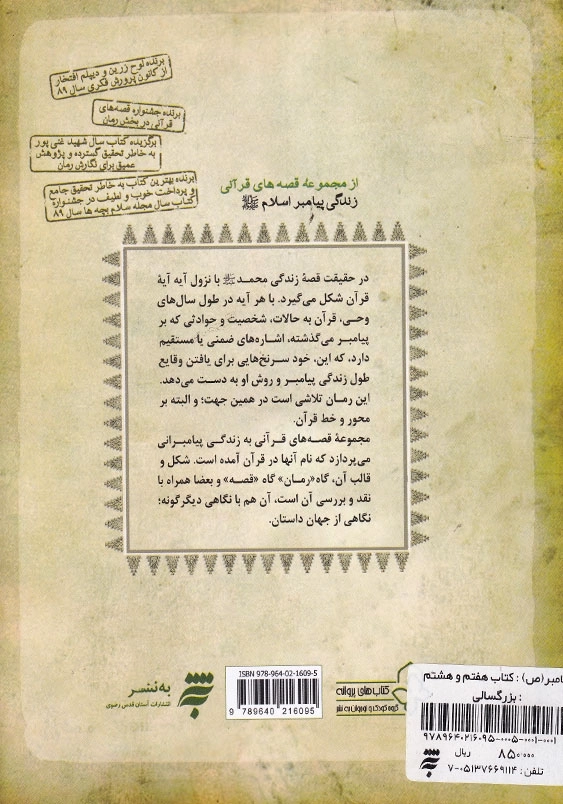 برنده لوح زرین و دیپلم افتخار
از کانون پرورش فکری سال ۸۹
برنده جشنواره قصه‌های
قرآنی در بخش رمان
برگزیده کتاب سال شهید غنی پور
به خاطر تحقیق گسترده و پژوهش
عمیق برای نگارش رمان
برنده بهترین کتاب به خاطر تحقیق جامع
و پرداخت خوب و لطیف در جشنواره
کتاب سال مجله سلام بچه ها سال ۸۹
از مجموعهٔ قصه های قرآنی
زندگی پیامبر اسلام ﷺ
در حقیقت قصهٔ زندگی محمد ﷺ با نزول آیه آیهٔ
قرآن شکل می‌گیرد. با هر آیه در طول سال‌های
وحی، قرآن به حالات، شخصیت و حوادثی که بر
پیامبر می‌گذشته، اشاره‌های ضمنی یا مستقیم
دارد، که این، خود سرنخ‌هایی برای یافتن وقایع
طول زندگی پیامبر و روش او به دست می‌دهد.
این رمان تلاشی است در همین جهت؛ و البته بر
محور و خط قرآن.
مجموعهٔ قصه‌های قرآنی به زندگی پیامبرانی
می‌پردازد که نام آنها در قرآن آمده است. شکل و
قالب آن، گاه «رمان» گاه «قصه» و بعضا همراه با
نقد و بررسی آن است، آن هم با نگاهی دیگرگونه؛
نگاهی از جهان داستان.
به‌نشر
انتشارات آستان قدس رضوی
ISBN 978-964-02-1609-5
9 789640 216095
کتاب‌های پروانه
گروه کودک و نوجوان به نشر
امبر(ص) : کتاب هفتم و هشتم
: بزرگسالی
۹۷۸۹۶۴۰۲۱۶۰۹۵-۰۰۰۵-۰۰۰۱-۰۰۰۱
۸۵۰۰۰۰ ریال
تلفن : ۷-۰۵۱۳۷۶۶۹۱۱۴